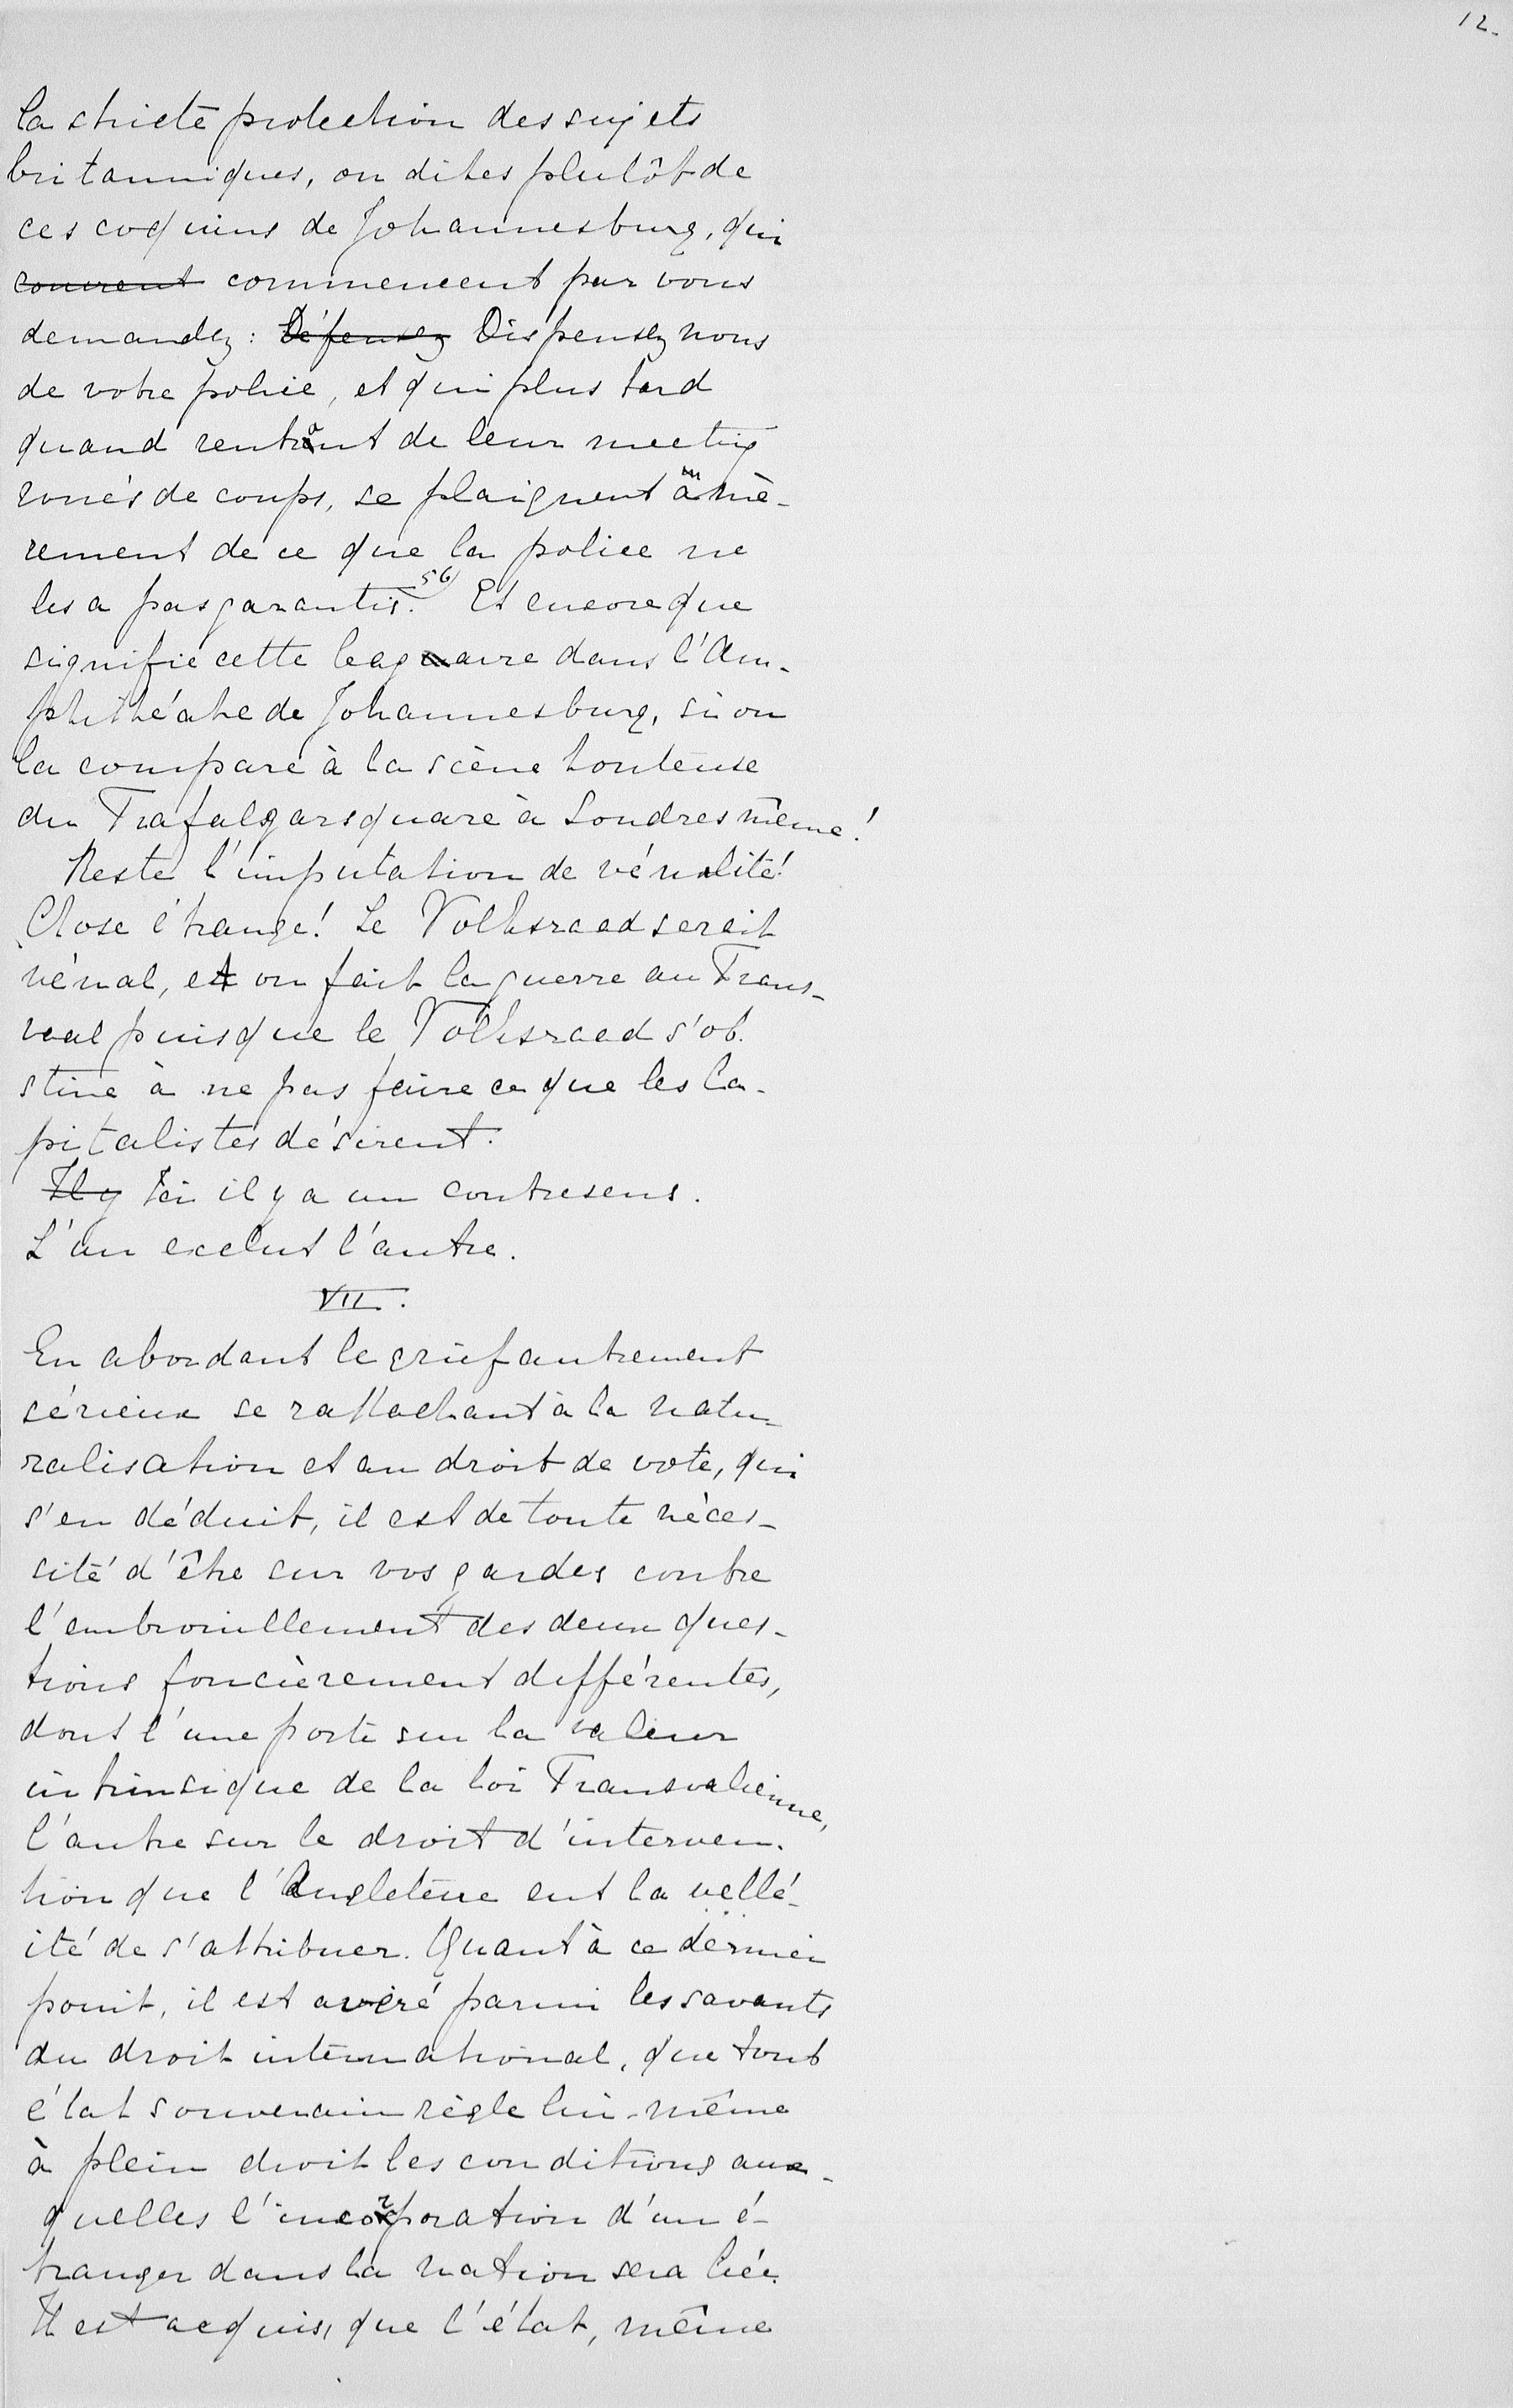 12.
la stricte protection des sujets
britanniques, ou dites plutôt de
ces coquins de Johannesburg, qui
couvrent commencent par vous
demandez: Défensez Dispensez nous
de votre police, et qui plus tard
quand rentrant de leur meeting
roués de coups, se plaignent amè-
rement de ce que la police ne
les a pas garantis. 56) Et encore que
signifie cette bagarre dans l'Am-
phithéatre de Johannesburg, si on
la compare à la scène honteuse
du Trafalgarsquare à Londres même!
Reste l'imputation de vénalité!
Chose étrange! Le Volksraad serait
vénal, et on fait la guerre au Trans-
vaal puisque le Volksraad s'ob-
stine à ne pas faire ce que les Ca-
pitalistes désirent.
Il y Ici il y a un contresens.
L'un exclut l'autre.
VII.
En abordant le grief autrement
sérieux se rattachant à la natu-
ralisation et au droit de vote, qui
s'en déduit, il est de toute néces-
sité d'être sur vos gardes contre
l'embrouillement des deux ques-
tions foncièrement différentes,
dont l'une porte sur la valeur
intrinsique de la loi Transvalienne,
l'autre sur le droit d'interven-
tion que l'Angleterre eut la vellé-
ité de s'attribuer. Quant à ce dernier
point, il est avéré parmi les savants
du droit international, que tout
état souverain règle lui-même
à plein droit les conditions aux-
quelles l'incorporation d'un é-
tranger dans la nation sera liée.
Il est acquis, que l'état, même